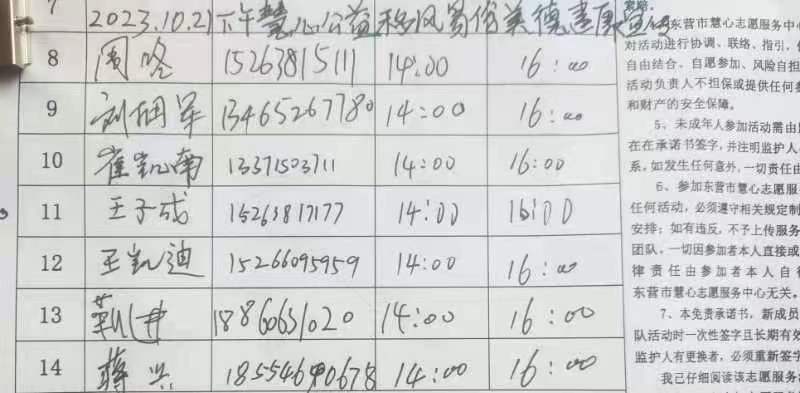 7
2023.10.21下午慧心公益移风易俗美德健康宣
8 周咚 15263815111 14:00 16:00
9 刘相军 13465267780 14:00 16:00
10 崔凯南 13371503711 14:00 16:00
11 王子成 15263817177 14:00 16:00
12 王凯迪 15266095959 14:00 16:00
13 14:00 16:00
14 蒋兴 14:00 16:00
东营市慧心志愿服务中
对活动进行协调、联络、指引,
自由结合、自愿参加、风险自担
活动负责人不担保或提供任何
和财产的安全保障。
5、未成年人参加活动需由
在在承诺书签字,并注明监护人
系。如发生任何意外,一切责任由
6、参加东营市慧心志愿服
任何活动,必须遵守相关规定制
安排;如有违反,不予上传服务
团队,一切因参加者本人直接或
律责任由参加者本人自
东营市慧心志愿服务中心无关。
7、本免责承诺书,新成员
队活动时一次性签字且长期有效
监护人有更换者,必须重新签字
我已仔细阅读该志愿服务